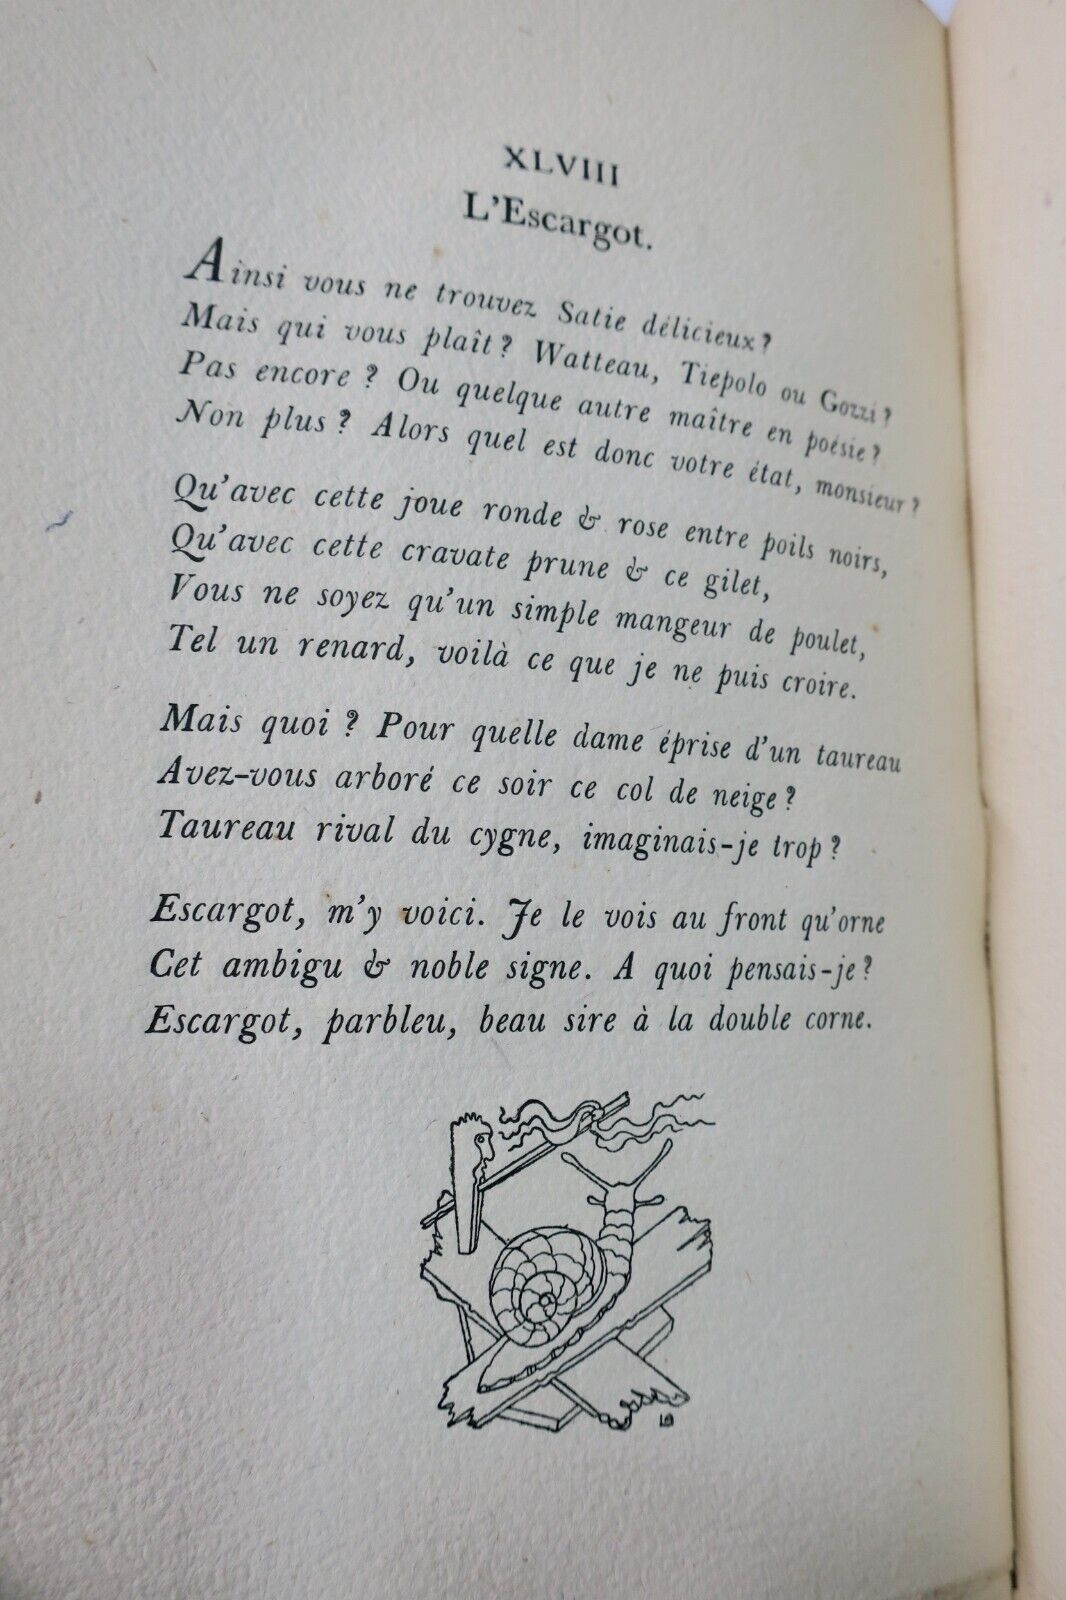 XLVIII
L'Escargot.
Ainsi vous ne trouvez Satie délicieux?
Mais qui vous plaît? Watteau, Tiepolo ou Gozzi?
Pas encore? Ou quelque autre maître en poésie?
Non plus? Alors quel est donc votre état, monsieur?
Qu'avec cette joue ronde & rose entre poils noirs,
Qu'avec cette cravate prune & ce gilet,
Vous ne soyez qu'un simple mangeur de poulet,
Tel un renard, voilà ce que je ne puis croire.
Mais quoi? Pour quelle dame éprise d'un taureau
Avez-vous arboré ce soir ce col de neige?
Taureau rival du cygne, imaginais-je trop?
Escargot, m'y voici. Je le vois au front qu'orne
Cet ambigu & noble signe. A quoi pensais-je?
Escargot, parbleu, beau sire à la double corne.